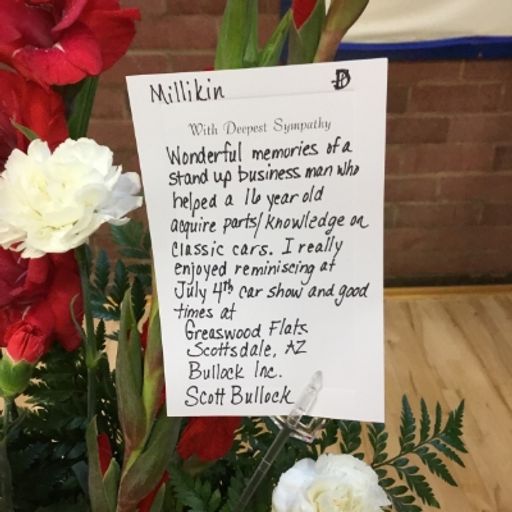 Millikin
With Deepest Sympathy
Wonderful memories of a
stand up business man who
helped a 16 year old
acquire parts/knowledge on
classic cars. I really
enjoyed reminiscing at
July 4th car show and good
times at
Greaswood Flats
Scottsdale, AZ
Bullock Inc.
Scott Bullock